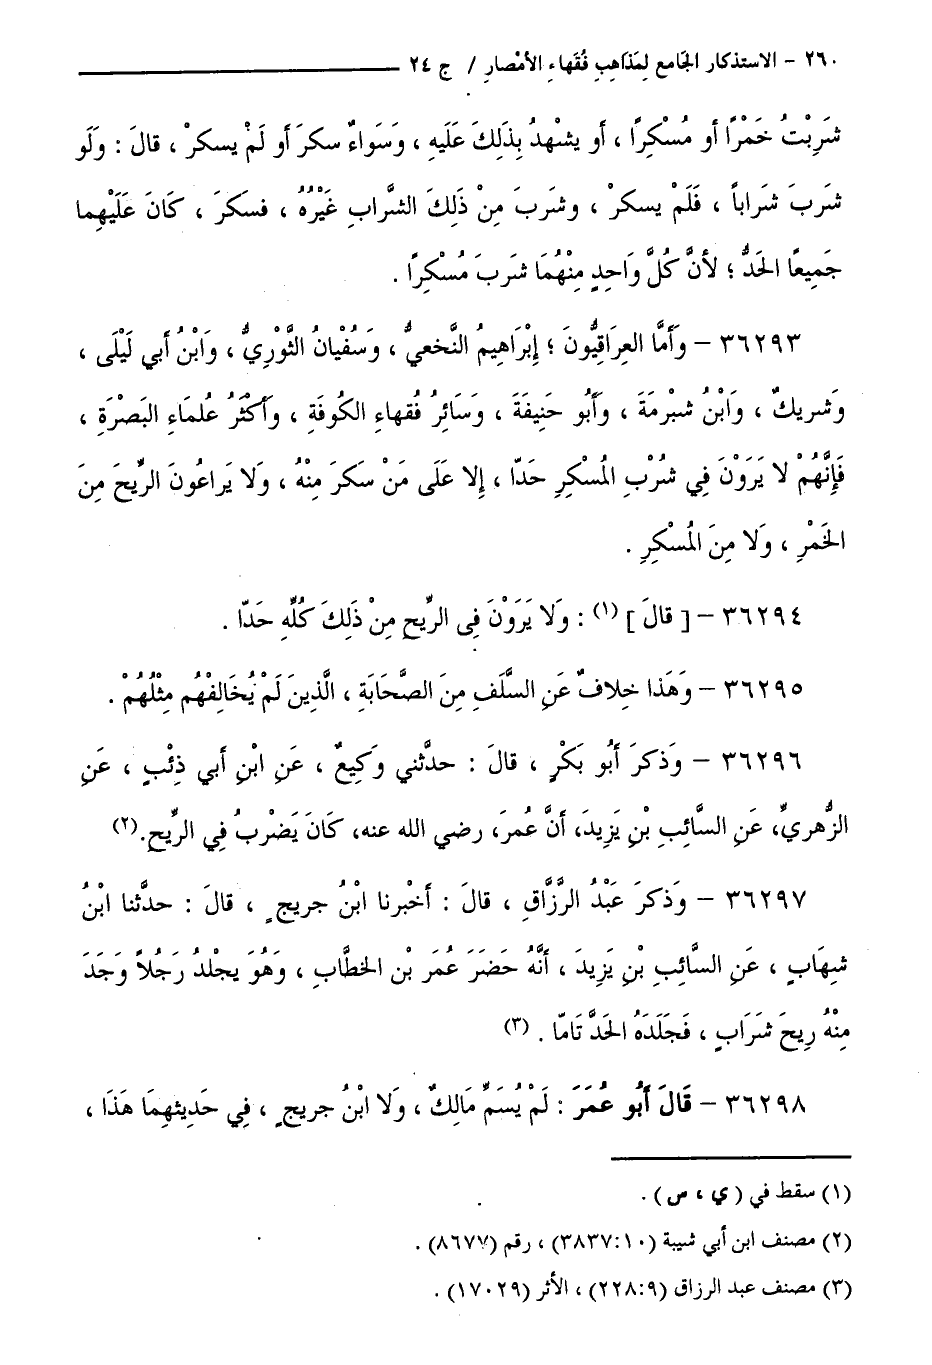 ٢٦٠ - الاستذكار الجَامع لِمَذَاهِبِ فُقَهاءِ الأمْصارِ / ج ٢٤
شَرِبْتُ خَمْرًا أو مُسْكِرًا ، أو يشْهدُ بِذَلِكَ عَلَيهِ ، وَسَواءٌ سكرَ أو لَمْ يسكرْ ، قالَ : وَلَو
شرَبَ شرَاباً ، فَلَمْ يسكرْ ، وشرَبَ مِنْ ذَلِكَ الشرَّابِ غَيْرُهُ ، فسكرَ ، كَانَ عَلَيْهِما
جَمِيعًا الحَدُّ ؛ لأنَّ كُلَّ وَاحِدٍ مِنْهُمَا شرَبَ مُسْكِرًا .
٣٦٢٩٣ – وَأَمَّا العِرَاقِيُّونَ ؛ إِبْرَاهِيمُ النَّخعيُّ ، وَسُفْيانُ الثَّوْرِيُّ ، وَابْنُ أبي لَيْلَى ،
وَشريكٌ ، وَابْنُ شبْرمَةَ ، وَأَبُو حَنِيفَةَ ، وَسَائِرُ فُقهاءِ الكُوفَةِ ، وَأَكْثَرُ عُلمَاءِ البَصْرَةِ ،
فَإِنَّهُمْ لا يَرَوْنَ فِي شُرْبِ المُسْكِرِ حَدّا ، إِلا عَلَى مَنْ سَكرَ مِنْهُ ، وَلا يَراعُونَ الرِّيحَ مِنَ
الخَمْرِ ، وَلا مِنَ المُسْكِرِ .
٣٦٢٩٤ – [ قالَ ] (١) : وَلا يَرَوْنَ فِى الرِّيحِ مِنْ ذَلِكَ كُلِّهِ حَدّا .
٣٦٢٩٥ – وَهَذا خِلافٌ عَنِ السَّلَفِ مِنَ الصَّحَابَةِ ، الَّذِينَ لَمْ يُخَالِفْهُم مِثْلُهُمْ .
٣٦٢٩٦ – وَذكرَ أَبُو بَكْرٍ ، قالَ : حدثَّني وَكِيعٌ ، عَنِ ابْنِ أبي ذِئْبٍ ، عَنِ
الزُّهريِّ، عَنِ السَّائِبِ بْنِ يَزِيدَ، أَنَّ عُمرَ، رضي الله عنه، كَانَ يَضْرِبُ فِي الرِّيحِ.(٢)
٣٦٢٩٧ – وَذكرَ عَبْدُ الرَّزَّاقِ ، قالَ : أخْبرنا ابْنُ جريجٍ ، قالَ : حدثَّنا ابْنُ
شِهَابٍ ، عَنِ السَّائِبِ بْنِ يَزِيدَ ، أَنَّهُ حَضَرَ عُمَرَ بْنِ الخطَّابِ ، وَهُوَ يجْلدُ رَجُلاً وَجَدَ
مِنْهُ رِيحَ شرَابٍ ، فَجَلَدَهُ الحَدَّ تَامّا . (٣)
٣٦٢٩٨ – قَالَ أَبُو عُمَرَ : لَمْ يُسَمِّ مَالِكٌ ، وَلا ابْنُ جريجٍ ، فِي حَدِيثِهِمَا هَذَا ،
(١) سقط في ( ي ، ص ) .
(٢) مصنف ابن أبي شيبة (٣٨٣٧:١٠) ، رقم (٨٦٧٧) .
(٣) مصنف عبد الرزاق (٢٢٨:٩) ، الأثر (١٧٠٢٩) .